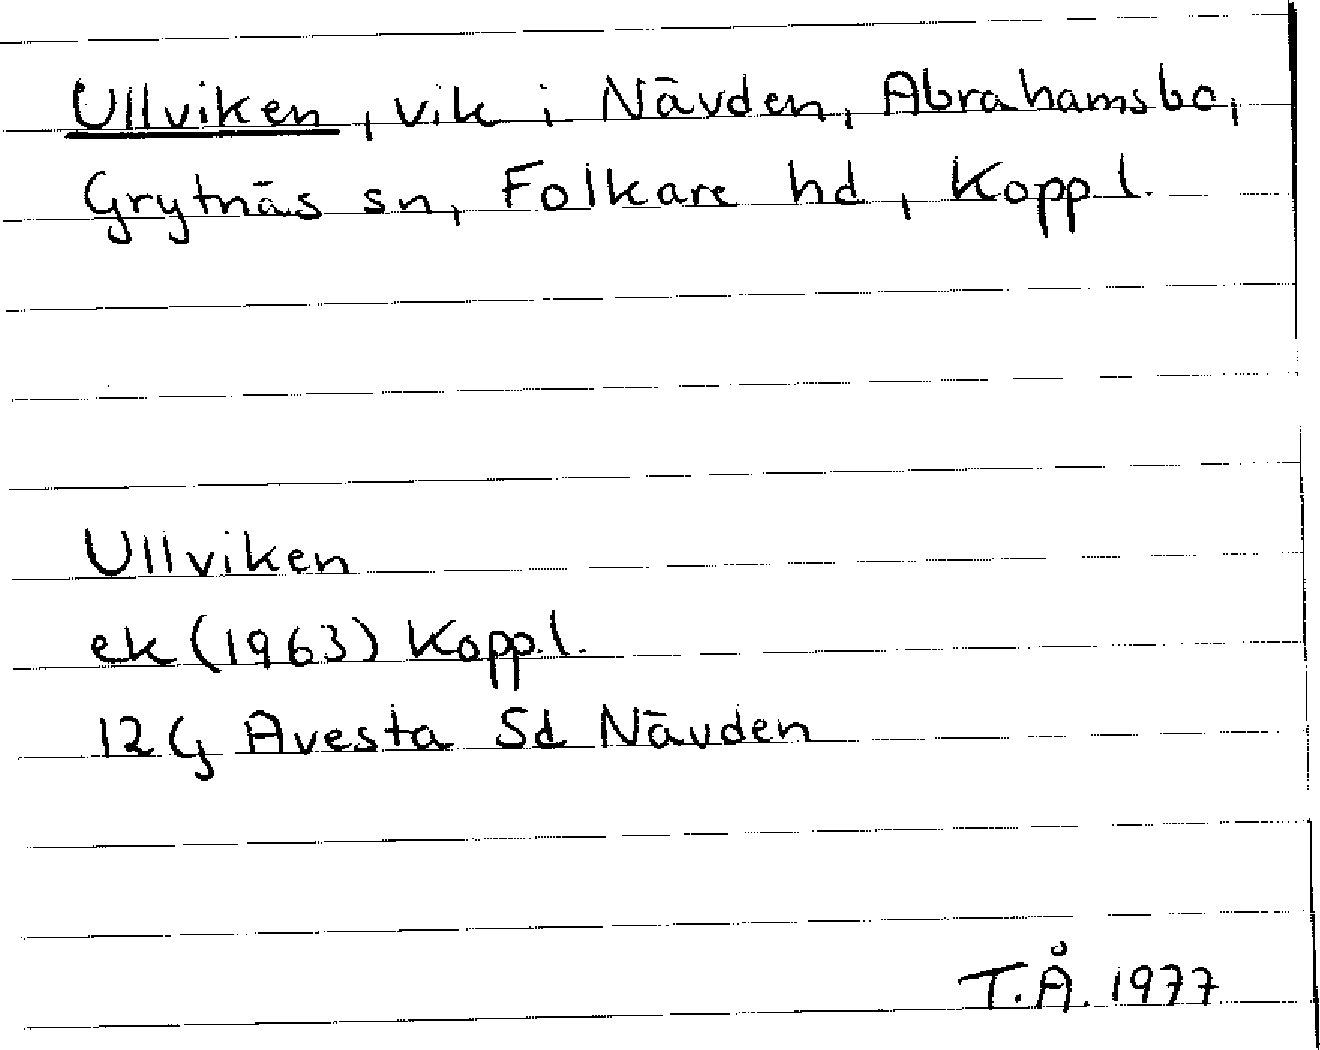 Ullviken, vik i Nävden, Abrahamsbo,
Grytnäs sn, Folkare hd, Kopp.l.
Ullviken
ek (1963) Kopp.l.
12G Avesta Sd Nävden
T.Å. 1977